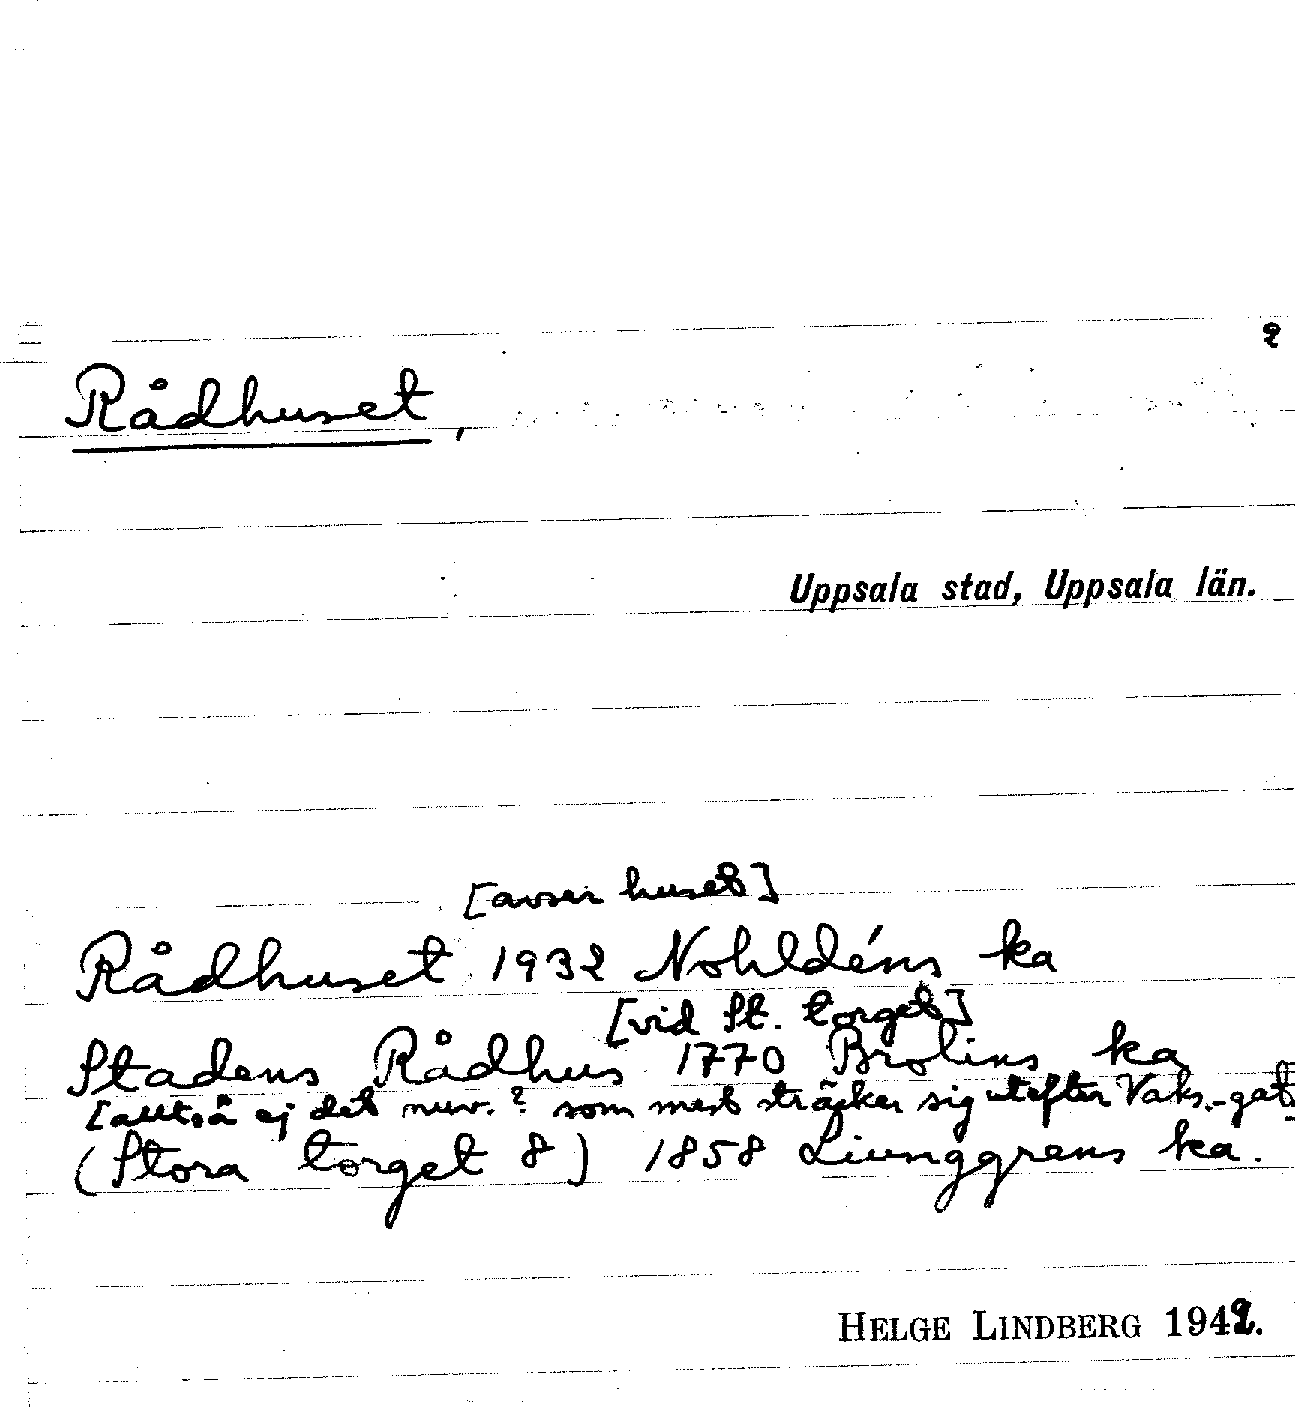 2
Rådhuset,
Uppsala stad, Uppsala län.
[avser huset]
Rådhuset 1932 Nohldéns ka
[vid St. torget]
Stadens Rådhus 1770 Brolins ka
[alltså ej det nuv.? som mest sträcker sig utefter Vaks.-gat
(Stora torget 8) 1858 Liunggrens ka.
HELGE LINDBERG 1942.